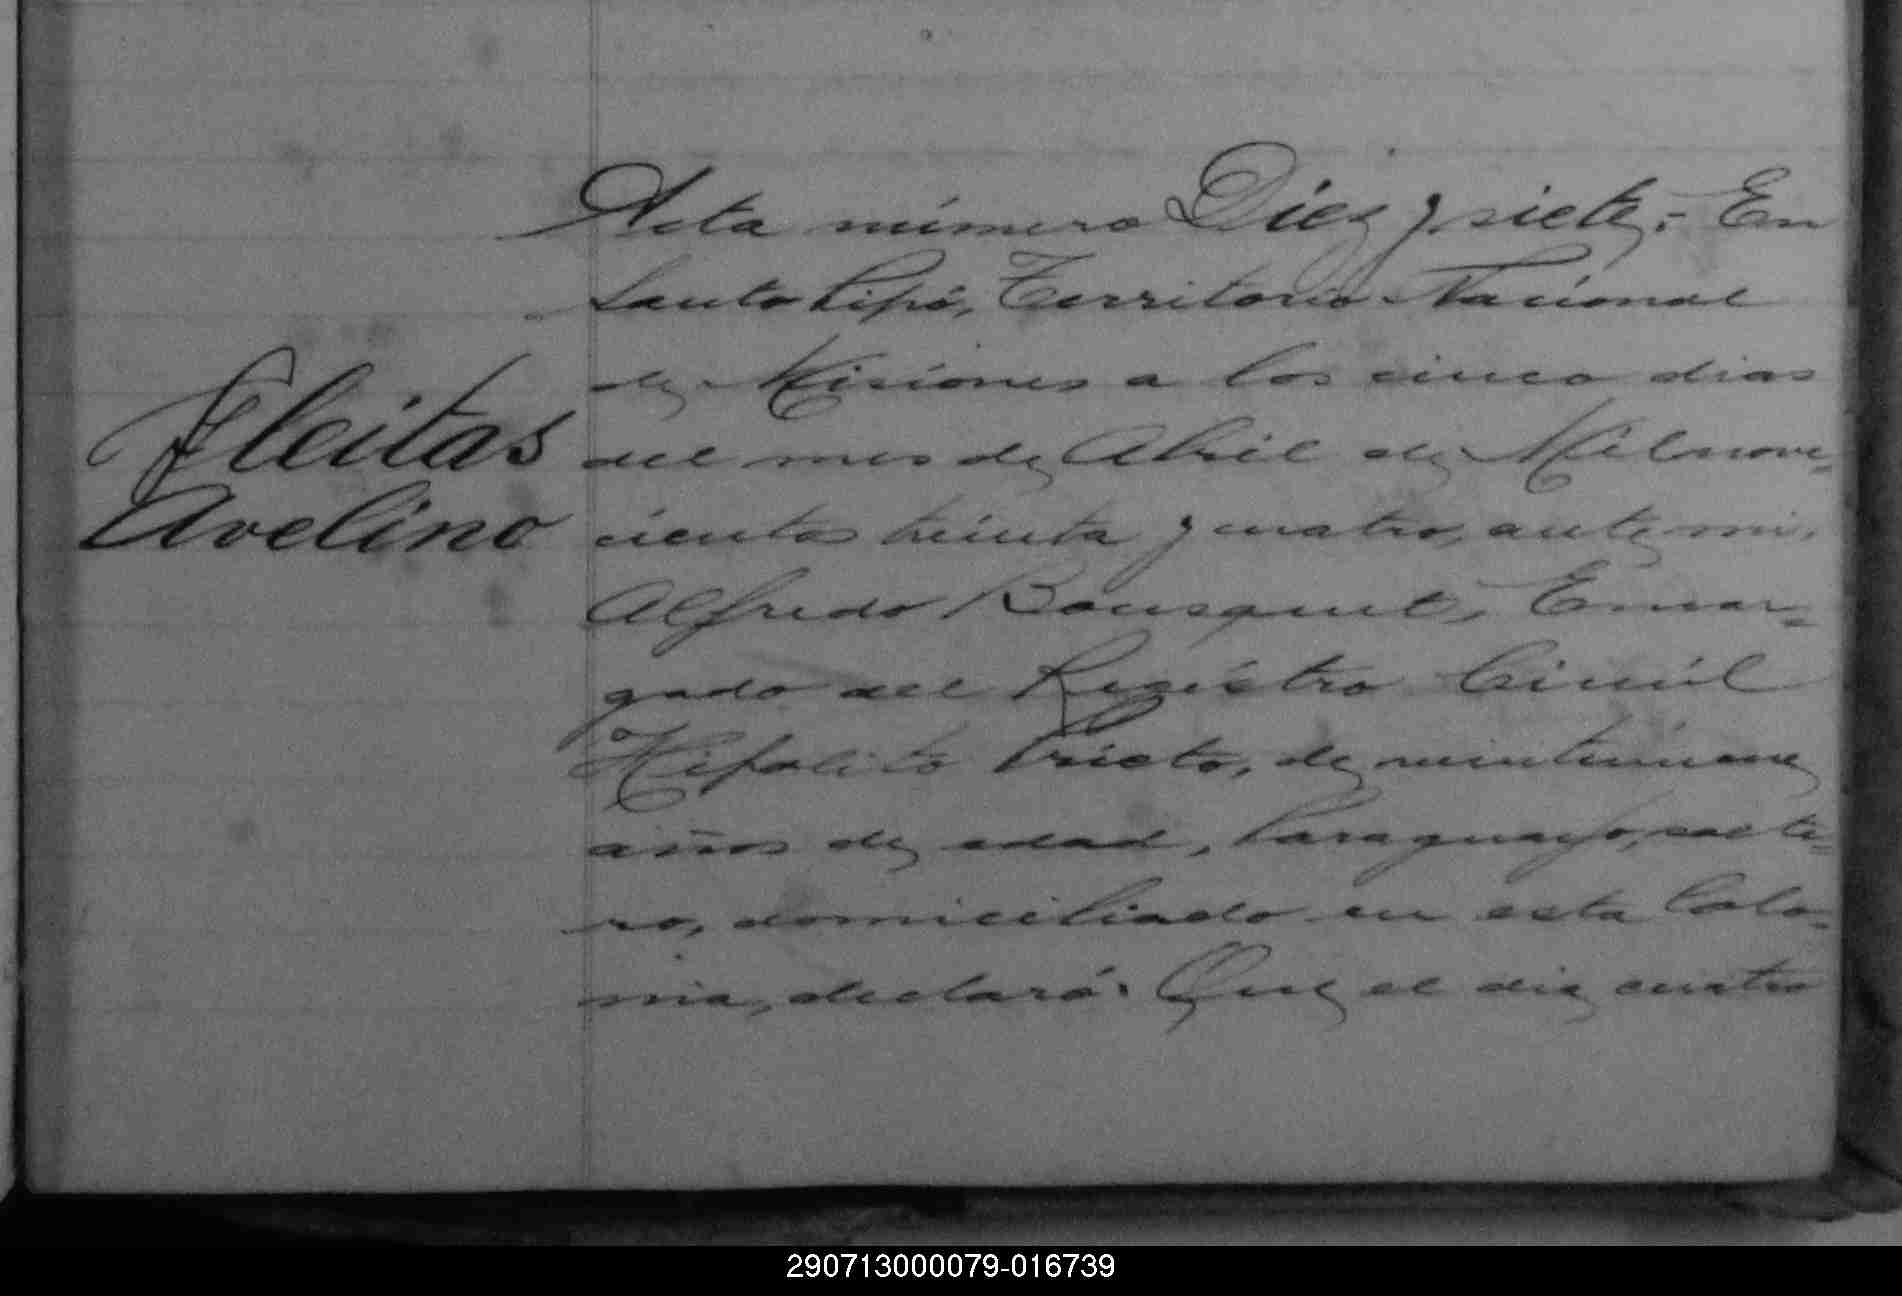 Fleitas
Avelino
Acta número Diez y siete,- En
Santo Pipó, Territorio Nacional
de Misiones a los cinco dias
del mes de Abril de Mil nove-
cientos treinta y cuatro, ante mi,
Alfredo Bousquet, Encar-
gado del Registro Civíl
Hipolito Prieto, de veintinueve
años de edad, Paraguayo, solte-
ro, domiciliado en esta Colo-
nia, declaró: Que el dia cuatro
290713000079-016739